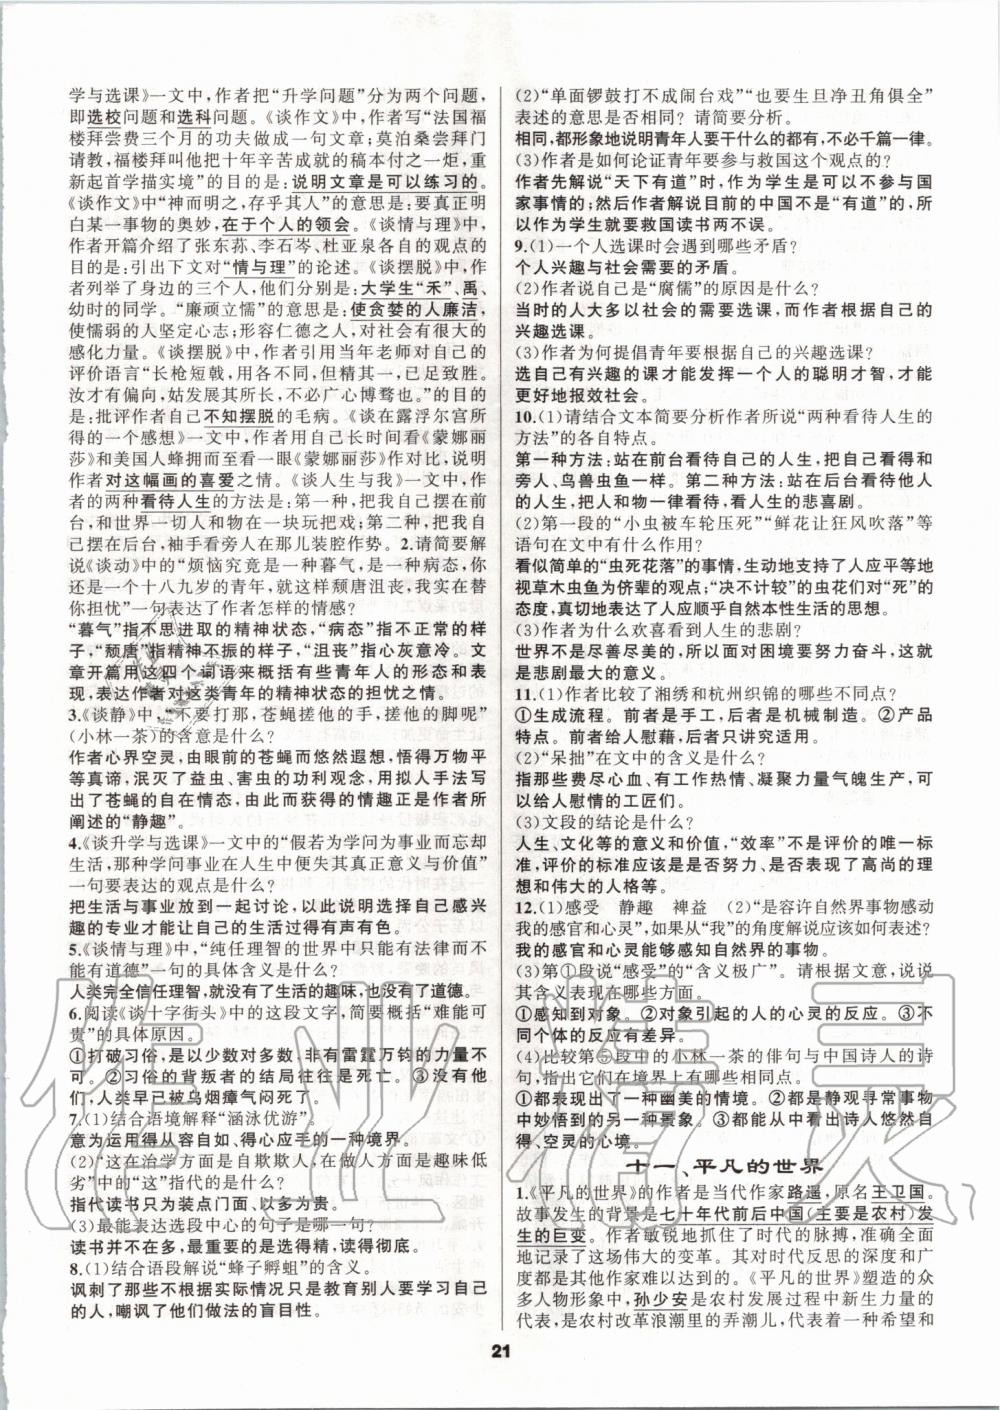 学与选课》一文中,作者把“升学问题”分为两个问题,
即选校问题和选科问题。《谈作文》中,作者写“法国福
楼拜尝费三个月的功夫做成一句文章;莫泊桑尝拜门
请教,福楼拜叫他把十年辛苦成就的稿本付之一炬,重
新起首学描实境”的目的是:说明文章是可以练习的。
《谈作文》中“神而明之,存乎其人”的意思是:要真正明
白某一事物的奥妙,在于个人的领会。《谈情与理》中,
作者开篇介绍了张东荪、李石岑、杜亚泉各自的观点的
目的是:引出下文对“情与理”的论述。《谈摆脱》中,作
者列举了身边的三个人,他们分别是:大学生“禾”、禹、
幼时的同学。“廉顽立懦”的意思是:使贪婪的人廉洁,
使懦弱的人坚定心志;形容仁德之人,对社会有很大的
感化力量。《谈摆脱》中,作者引用当年老师对自己的
评价语言“长枪短戟,用各不同,但精其一,已足致胜。
汝才有偏向,姑发展其所长,不必广心博骛也。”的目的
是:批评作者自己不知摆脱的毛病。《谈在露浮尔宫所
得的一个感想》一文中,作者用自己长时间看《蒙娜丽
莎》和美国人蜂拥而至看一眼《蒙娜丽莎》作对比,说明
作者对这幅画的喜爱之情。《谈人生与我》一文中,作
者的两种看待人生的方法是:第一种,把我自己摆在前
台,和世界一切人和物在一块玩把戏;第二种,把我自
己摆在后台,袖手看旁人在那儿装腔作势。2.请简要解
说《谈动》中的“烦恼究竟是一种暮气,是一种病态,你
还是一个十八九岁的青年,就这样颓唐沮丧,我实在替
你担忧”一句表达了作者怎样的情感?
“暮气”指不思进取的精神状态,“病态”指不正常的样
子,“颓唐”指精神不振的样子,“沮丧”指心灰意冷。文
章开篇用这四个词语来概括有些青年人的形态和表
现,表达作者对这类青年的精神状态的担忧之情。
3.《谈静》中,“不要打那,苍蝇搓他的手,搓他的脚呢”
(小林一茶)的含意是什么?
作者心界空灵,由眼前的苍蝇而悠然遐想,悟得万物平
等真谛,泯灭了益虫、害虫的功利观念,用拟人手法写
出了苍蝇的自在情态,由此而获得的情趣正是作者所
阐述的“静趣”。
4.《谈升学与选课》一文中的“假若为学问为事业而忘却
生活,那种学问事业在人生中便失其真正意义与价值”
一句要表达的观点是什么?
把生活与事业放到一起讨论,以此说明选择自己感兴
趣的专业才能让自己的生活过得有声有色。
5.《谈情与理》中,“纯任理智的世界中只能有法律而不
能有道德”一句的具体含义是什么?
人类完全信任理智,就没有了生活的趣味,也没有了道德。
6.阅读《谈十字街头》中的这段文字,简要概括“难能可
贵”的具体原因。
①打破习俗,是以少数对多数,非有雷霆万钧的力量不
可。②习俗的背叛者的结局往往是死亡。③没有他
们,人类早已被乌烟瘴气闷死了。
7.(1)结合语境解释“涵泳优游”。
意为运用得从容自如、得心应手的一种境界。
(2)“这在治学方面是自欺欺人,在做人方面是趣味低
劣”中的“这”指代的是什么?
指代读书只为装点门面、以多为贵。
(3)最能表达选段中心的句子是哪一句?
读书并不在多,最重要的是选得精,读得彻底。
8.(1)结合语段解说“蜂子孵蛆”的含义。
讽刺了那些不根据实际情况只是教育别人要学习自己
的人,嘲讽了他们做法的盲目性。
(2)“单面锣鼓打不成闹台戏”“也要生旦净丑角俱全”
表述的意思是否相同? 请简要分析。
相同,都形象地说明青年人要干什么的都有,不必千篇一律。
(3)作者是如何论证青年要参与救国这个观点的?
作者先解说“天下有道”时,作为学生是可以不参与国
家事情的;然后作者解说目前的中国不是“有道”的,所
以作为学生就要救国读书两不误。
9.(1)一个人选课时会遇到哪些矛盾?
个人兴趣与社会需要的矛盾。
(2)作者说自己是“腐儒”的原因是什么?
当时的人大多以社会的需要选课,而作者根据自己的
兴趣选课。
(3)作者为何提倡青年要根据自己的兴趣选课?
选自己有兴趣的课才能发挥一个人的聪明才智,才能
更好地报效社会。
10.(1)请结合文本简要分析作者所说“两种看待人生的
方法”的各自特点。
第一种方法:站在前台看待自己的人生,把自己看得和
旁人、鸟兽虫鱼一样。第二种方法:站在后台看待他人
的人生,把人和物一律看待,看人生的悲喜剧。
(2)第一段的“小虫被车轮压死”“鲜花让狂风吹落”等
语句在文中有什么作用?
看似简单的“虫死花落”的事情,生动地支持了人应平等地
视草木虫鱼为侪辈的观点;“决不计较”的虫花们对“死”的
态度,真切地表达了人应顺乎自然本性生活的思想。
(3)作者为什么欢喜看到人生的悲剧?
世界不是尽善尽美的,所以面对困境要努力奋斗,这就
是悲剧最大的意义。
11.(1)作者比较了湘绣和杭州织锦的哪些不同点?
①生成流程。前者是手工,后者是机械制造。②产品
特点。前者给人慰藉,后者只讲究适用。
(2)“呆拙”在文中的含义是什么?
指那些费尽心血、有工作热情、凝聚力量气魄生产,可
以给人慰情的工匠们。
(3)文段的结论是什么?
人生、文化等的意义和价值,“效率”不是评价的唯一标
标准,评价的标准应该是是否表现出或者启示了高尚的理
想和伟大的人格等。
12.(1)感受 静趣 裨益 (2)“是容许自然界事物感动
我的感官和心灵”,如果从“我”的角度解说应该如何表达?
我的感官和心灵能够感知自然界的事物。
(3)第①段说“感受”的“含义极广”。请根据文意,说说
其含义表现在哪些方面。
①感知到对象。②对象引起的人的心灵的反应。③不
同个体的反应有差异。
(4)比较第⑤段中的小林一茶的俳句与中国诗人的诗
句,指出它们在境界上有哪些相同点。
①都表现出了一种幽美的情境。②都是静观寻常事物
中妙悟到的另一种景象。③都能从中看出诗人悠然自
得、空灵的心境。
十一、平凡的世界
1.《平凡的世界》的作者是当代作家路遥,原名王卫国。
故事发生的背景是七十年代前后中国(主要是农村)发
生的巨变。作者敏锐地抓住了时代的脉搏,精细而深入地
记录了这场伟大的变革。其对时代反思的深度和广
度都是其他作家难以达到的。《平凡的世界》塑造的众
多人物形象中,孙少安是农村发展过程中新生力量的
代表,是农村改革浪潮里的弄潮儿,代表着一种希望和
21
作业精灵